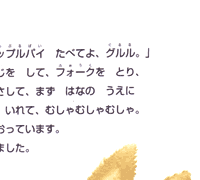 ップルパイ たべてよ、グルル。」
じを して、フォークを とり、
さして、まず はなの うえに
いれて、むしゃむしゃむしゃ。
おっています。
ました。